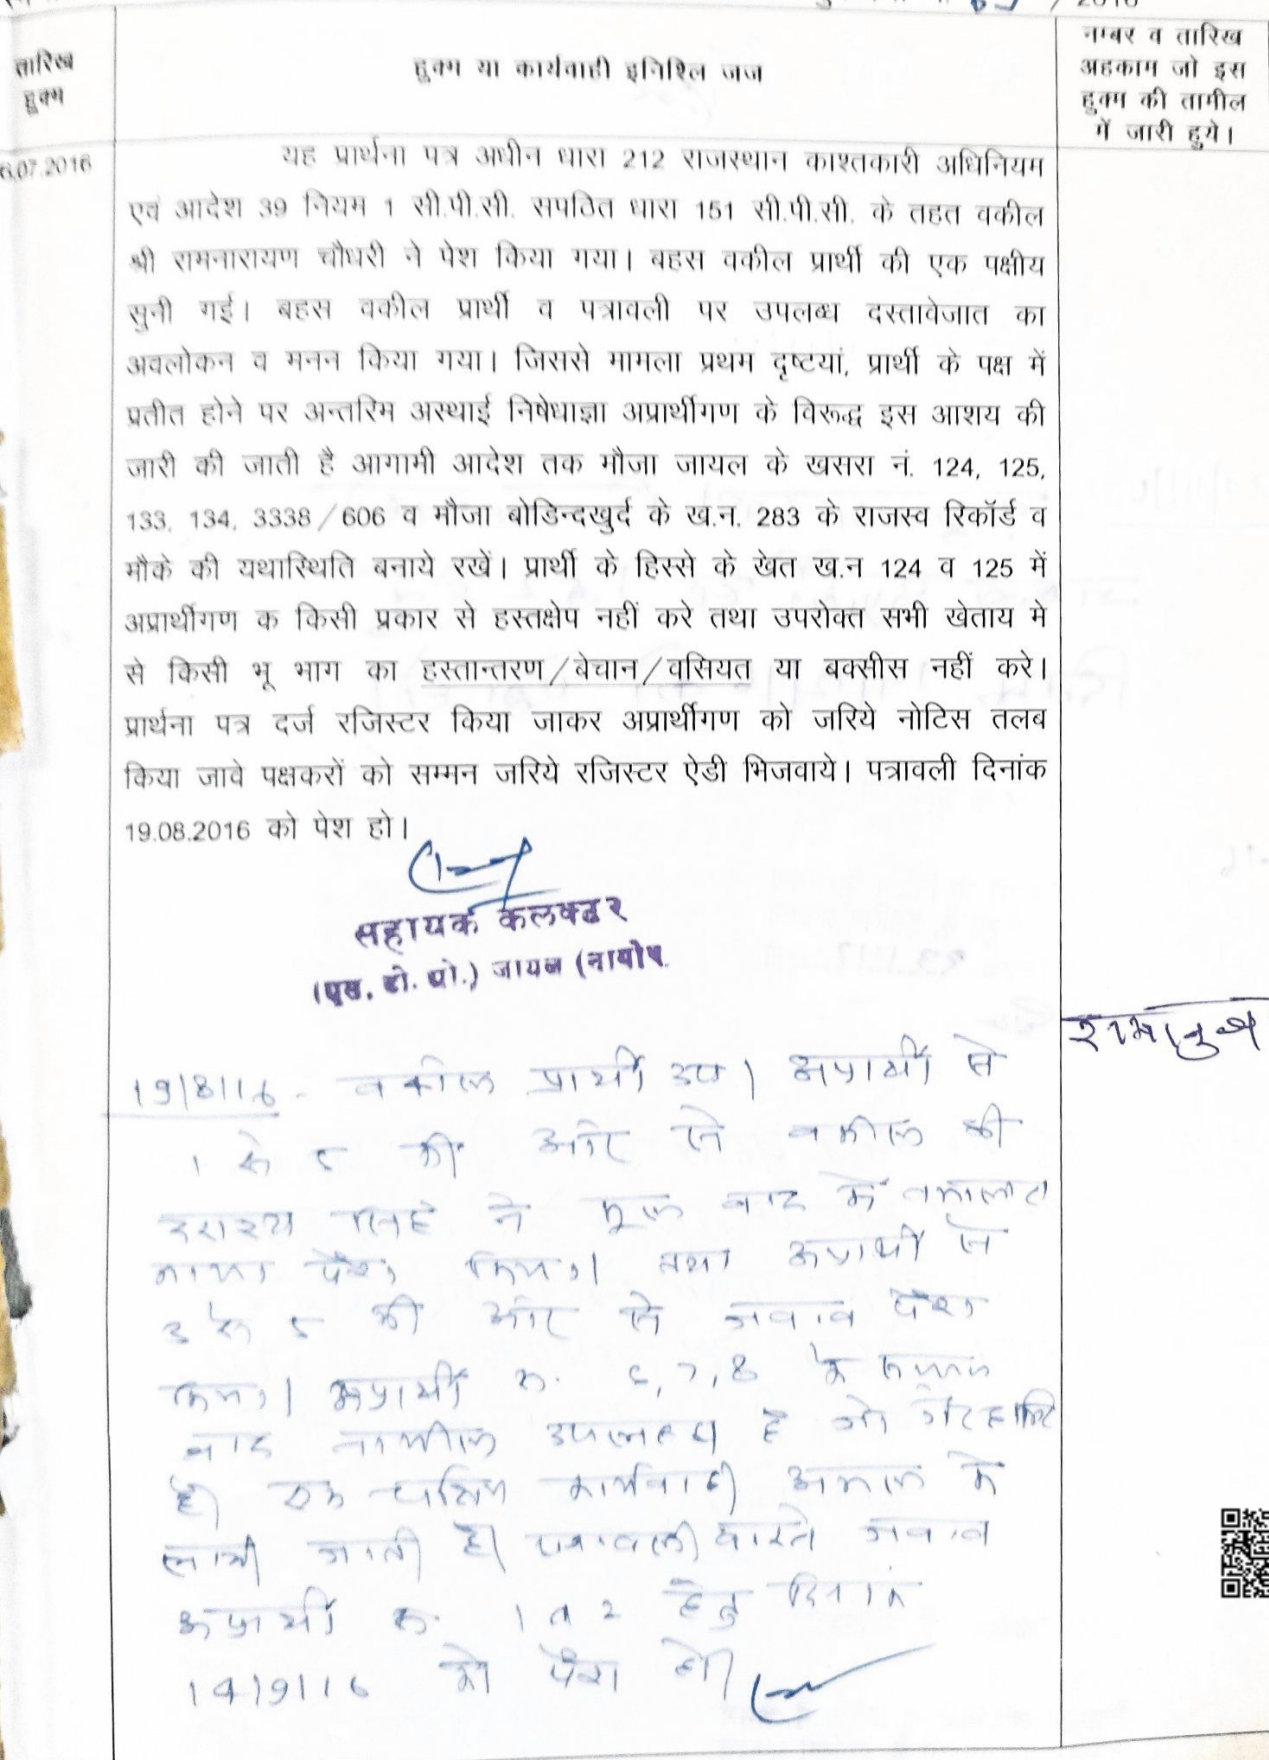 तारिख
हुक्म
हुक्म या कार्यवाही इनिश्लि जज
नम्बर व तारिख
अहकाम जो इस
हुक्म की तामील
में जारी हुये।
6.07.2016
यह प्रार्थना पत्र अधीन धारा 212 राजस्थान काश्तकारी अधिनियम
एवं आदेश 39 नियम 1 सी.पी.सी. सपठित धारा 151 सी.पी.सी. के तहत वकील
श्री रामनारायण चौधरी ने पेश किया गया। बहस वकील प्रार्थी की एक पक्षीय
सुनी गई। बहस वकील प्रार्थी व पत्रावली पर उपलब्ध दस्तावेजात का
अवलोकन व मनन किया गया। जिससे मामला प्रथम दृष्टयां, प्रार्थी के पक्ष में
प्रतीत होने पर अन्तरिम अस्थाई निषेधाज्ञा अप्रार्थीगण के विरूद्ध इस आशय की
जारी की जाती है आगामी आदेश तक मौजा जायल के खसरा नं. 124, 125,
133, 134, 3338/606 व मौजा बोडिन्दखुर्द के ख.न. 283 के राजस्व रिकॉर्ड व
मौके की यथास्थिति बनाये रखें। प्रार्थी के हिस्से के खेत ख.न 124 व 125 में
अप्रार्थीगण क किसी प्रकार से हस्तक्षेप नहीं करे तथा उपरोक्त सभी खेताय मे
से किसी भू भाग का हस्तान्तरण/बेचान/वसियत या बक्सीस नहीं करे।
प्रार्थना पत्र दर्ज रजिस्टर किया जाकर अप्रार्थीगण को जरिये नोटिस तलब
किया जावे पक्षकरों को सम्मन जरिये रजिस्टर ऐडी भिजवाये। पत्रावली दिनांक
19.08.2016 को पेश हो।
सहायक कलक्टर
(एस. डी. ओ.) जायल (नागौर
19/8/16 - वकील प्रार्थी उप। अप्रार्थी सं
1 से 5 की ओर से वकील श्री
सिंह ने मूल वाद में वकालत
नामा पेश किया। तथा अप्रार्थी सं
3 से 5 की ओर से जवाब पेश
किया। अप्रार्थी सं. 6,7,8 के सम्मन
बाद तामील उपलब्ध है जो गैरहाजिर
है। एक पक्षिय कार्यवाही अमल में
लायी जाती है। पत्रावली वास्ते जवाब
अप्रार्थी सं. 1 व 2 हेतु दिनांक
14/9/16 को पेश हो।